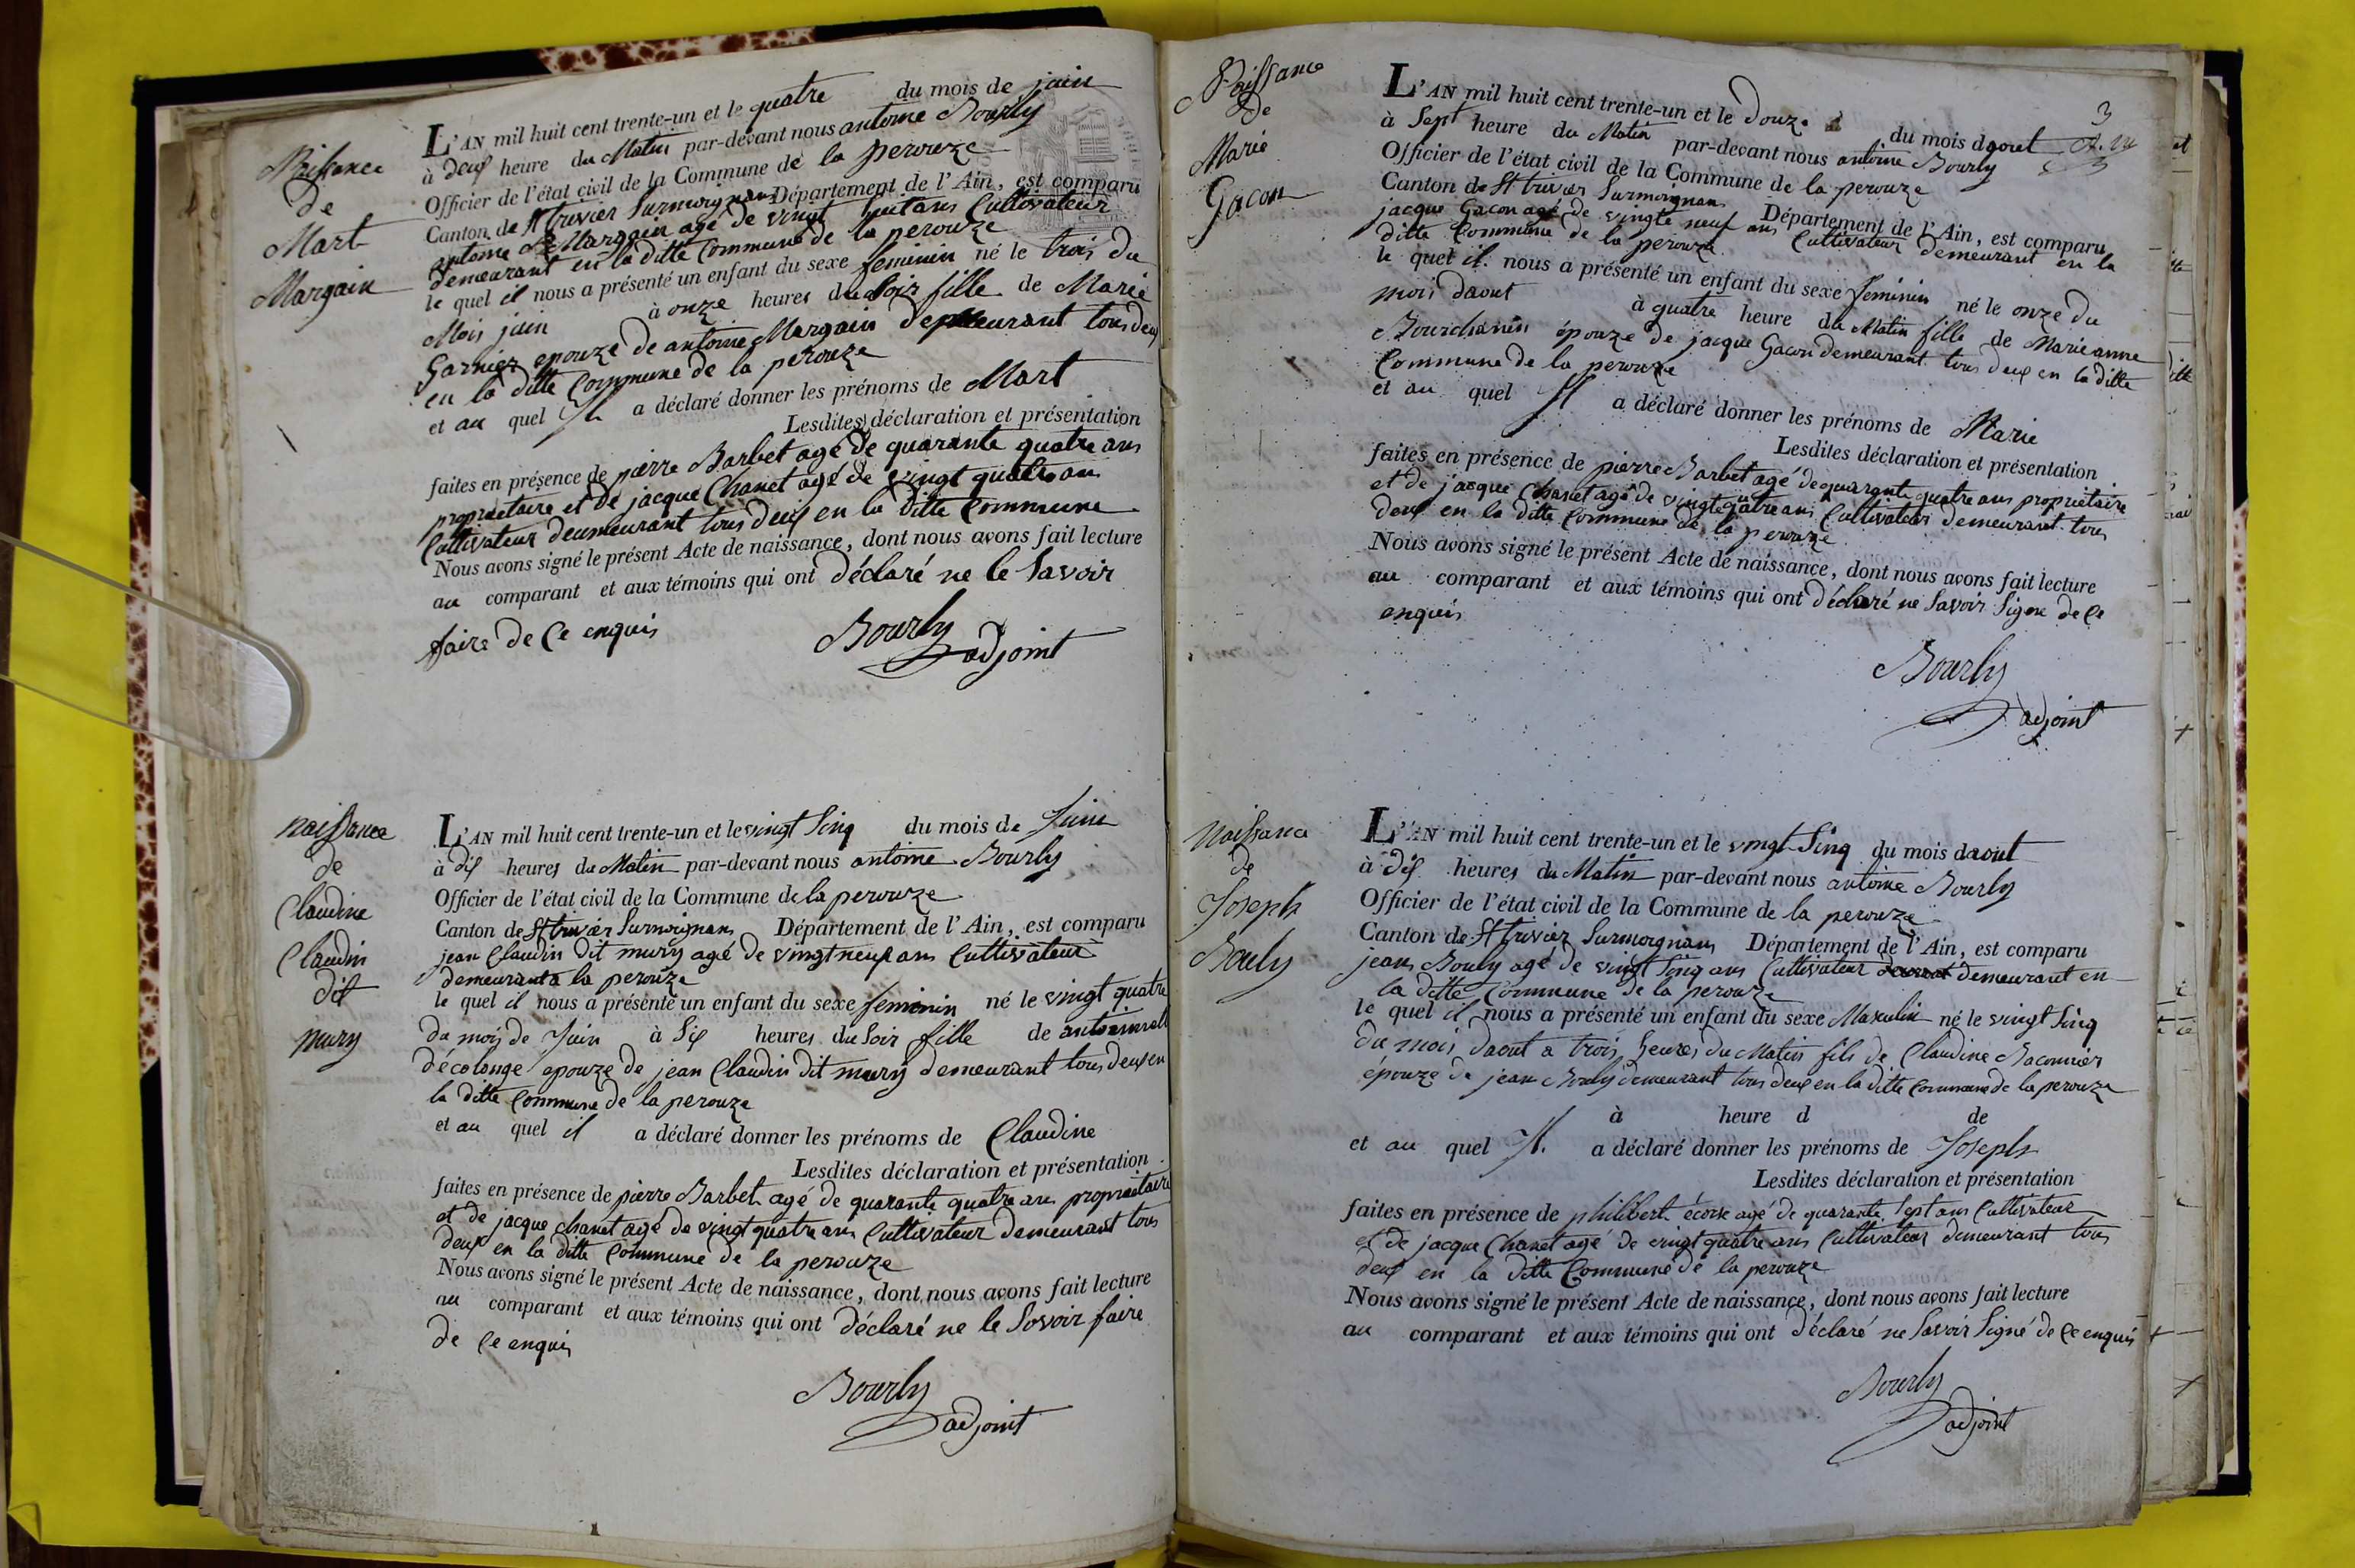 Naissance
de
Mart
Margain
L'AN mil huit cent trente-un et le quatre du mois de juin
à deux heure du Matin par-devant nous antoine Bourly
Officier de l'état civil de la Commune de la perouze
Canton de St trivier Surmoignans Département de l'Ain, est comparu
antoine Margain agé de vingt huit ans Cultivateur
demeurant en la ditte Commune de la perouze
le quel il nous a présenté un enfant du sexe feminin né le trois du
Mois juin à onze heures du Soir fille de Marie
Garnier epouze de antoine Margain demeurant tous deux
en la ditte Commune de la perouze
et au quel Il a déclaré donner les prénoms de Mart
Lesdites déclaration et présentation
faites en présence de pierre Barbet agé de quarante quatre ans
proprietaire et de jacque Chanet agé de vingt quatre ans
Cultivateur deumeurant tous deux en la ditte Commune
Nous avons signé le présent Acte de naissance, dont nous avons fait lecture
au comparant et aux témoins qui ont déclaré ne le Savoir
faire de Ce enquis
Bourly
adjoint
naissance
de
Claudine
Claudin
dit
mury
L'AN mil huit cent trente-un et le vingt Sinq du mois de Juin
à dix heures du Matin par-devant nous antoine Bourly
Officier de l'état civil de la Commune de la perouze
Canton de St trivier Surmoignans Département de l'Ain, est comparu
jean Claudin dit mury agé de vingt neuf ans Cultivateur
demeurant a la perouze
le quel il nous a présenté un enfant du sexe feminin né le vingt quatre
du mois de Juin à Six heures du Soir fille de
décolonge épouze de jean Claudin dit mury demeurant tous deux en
la ditte Commune de la perouze
et au quel il a déclaré donner les prénoms de Claudine
Lesdites déclaration et présentation
faites en présence de pierre Barbet agé de quarante quatre ans propriaitaire
et de jacque chanet agé de vingt quatre ans Cultivateur demeurant tous
deux en la ditte Commune de la perouze
Nous avons signé le présent Acte de naissance, dont nous avons fait lecture
au comparant et aux témoins qui ont déclaré ne le Sovoir faire
de Ce enquis
Bourly
adjoint
3
Naissance
de
Marie
Gacon
L'AN mil huit cent trente-un et le Douze du mois daout
à Sept heure du Matin par-devant nous antoine Bourly
Officier de l'état civil de la Commune de la perouze
Canton de St trivier Surmoignans Département de l'Ain, est comparu
jacque Gacon agé de vingte neuf ans Cultivateur demeurant en la
ditte Commune de la perouze
le quel il nous a présenté un enfant du sexe feminin né le onze du
mois daout à quatre heure du Matin fille de Marie anne
Bourchanin épouze de jacque Gacon demeurant tous deux en la ditte
Commune de la perouze
et au quel Il a déclaré donner les prénoms de Marie
Lesdites déclaration et présentation
faites en présence de pierre Barbet agé de quarante quatre ans propriétaire
et de jacque Chanet agé de vingte qatre ans Cultivateur demeurant tous
deux en la ditte Commune de la perouze
Nous avons signé le présent Acte de naissance, dont nous avons fait lecture
au comparant et aux témoins qui ont déclaré ne Savoir Signe de Ce
enquis
Bourly
adjoint
Naissance
de
Joseph
Bouly
L'AN mil huit cent trente-un et le vingt Sinq du mois daout
à dix heures du Matin par-devant nous antoine Bourly
Officier de l'état civil de la Commune de la perouze
Canton de St trivier Surmoignans Département de l'Ain, est comparu
jean Bouly agé de vingt Sinq ans Cultivateur demeurant en
la ditte Commune de la perouze
le quel il nous a présenté un enfant du sexe Masculin né le vingt Sinq
du mois daout a trois heures du Matin fils de Claudine Baconnier
épouze de jean Bouly demeurant tous deux en la ditte Commune de la perouze
à heure d de
et au quel Il a déclaré donner les prénoms de Joseph
Lesdites déclaration et présentation
faites en présence de philibert agé de quarante Sept ans Cultivateur
et de jacque Chanet agé de vingt quatre ans Cultivateur demeurant tous
deux en la ditte Commune de la perouze
Nous avons signé le présent Acte de naissance, dont nous avons fait lecture
au comparant et aux témoins qui ont déclaré ne Savoir Signé de Ce enquis
Bourly
adjoint